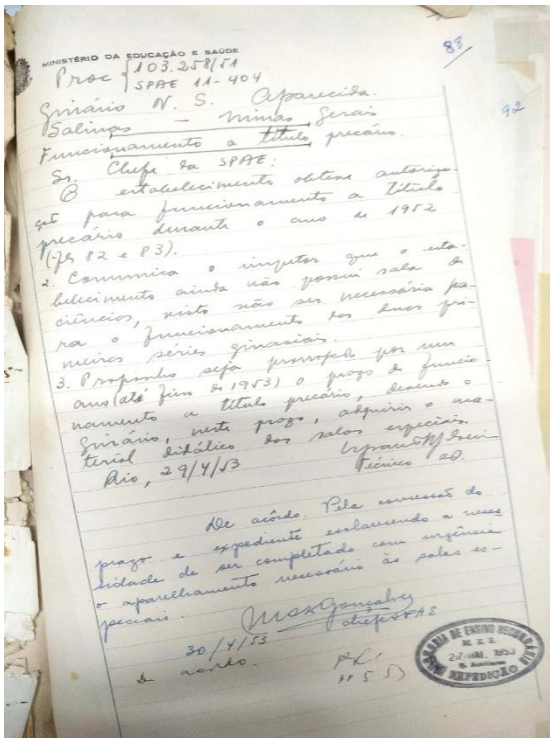 88
MINISTÉRIO DA EDUCAÇÃO E SAÚDE
Proc { 103.258/51
SPAE 11-404
92
Ginásio N. S. Aparecida.
Salinas - Minas Gerais
Funcionamento a título precário.
Sr. Chefe da SPAE:
O estabelecimento obteve autoriza-
ção para funcionamento a título
precário durante o ano de 1952
(fls 82 e 83).
2. Comunica o inspetor que o esta-
belecimento ainda não possui sala de
ciências, visto não ser necessária pa-
ra o funcionamento das duas pri-
meiras séries ginasiais.
3. Proponho seja prorrogado por um
ano (até fins de 1953) o prazo de funcio-
namento a título precário, devendo o
ginásio, neste prazo, adquirir o ma-
terial didático das salas especiais.
Rio, 29/4/53
Técnico
De acôrdo. Pela concessão do
prazo e expediente esclarecendo a neces-
sidade de ser completado com urgência
o aparelhamento necessário às salas es-
peciais.
MasGonçalves
chefe SPAE
30/4/53
De acordo.
11 5 53
DE ENSINO SECUNDÁRIO
M. E. S.
1953
EXPEDIÇÃO